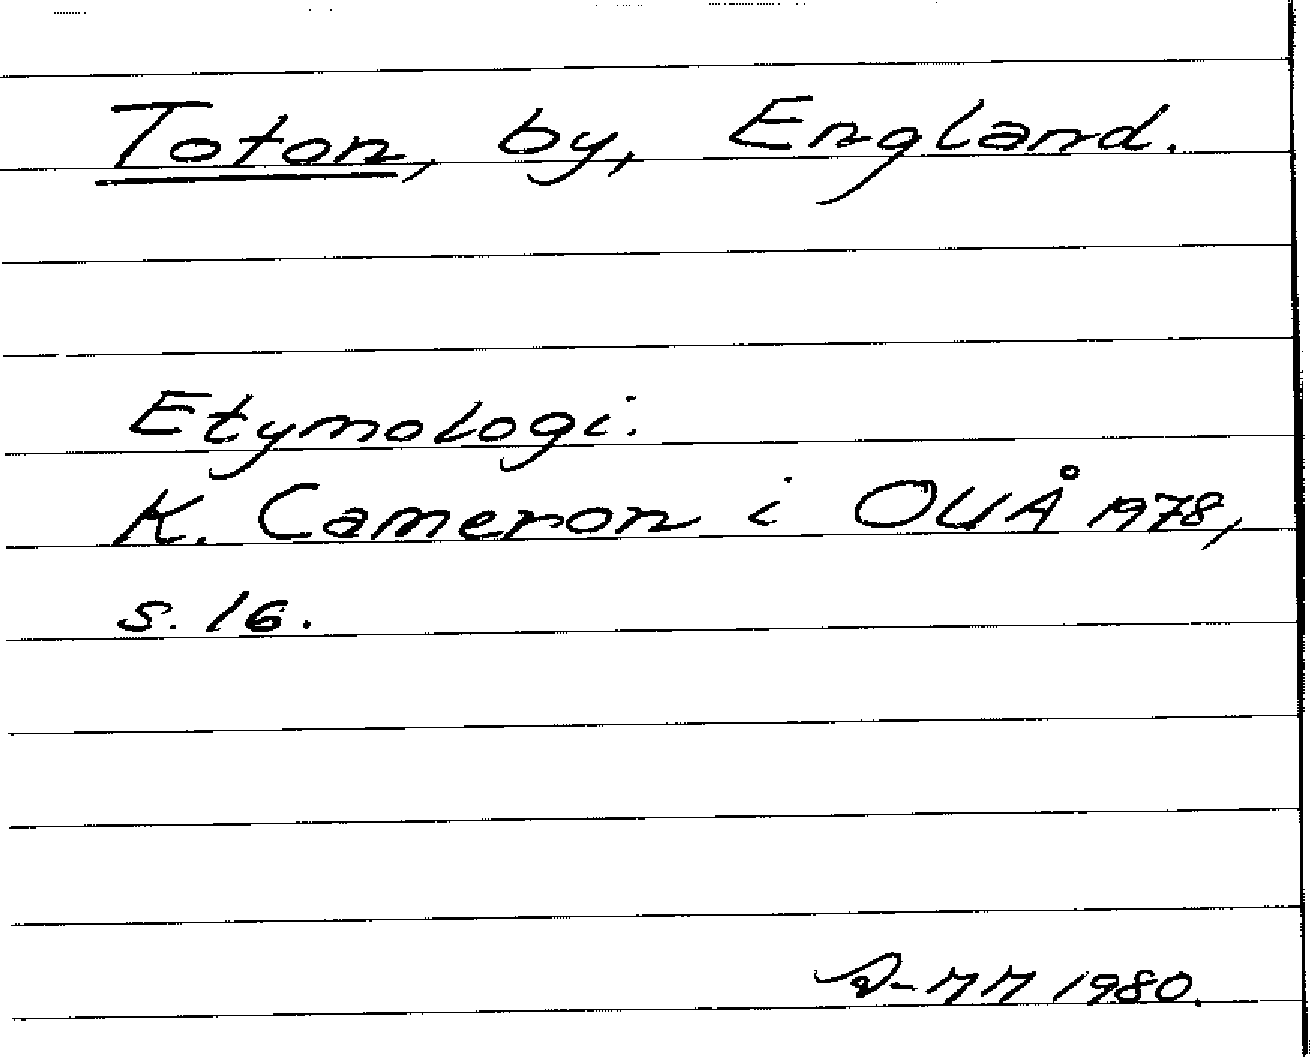 Toton, by, England.
Etymologi:
K. Cameron i OUÅ 1978,
s. 16.
1980.